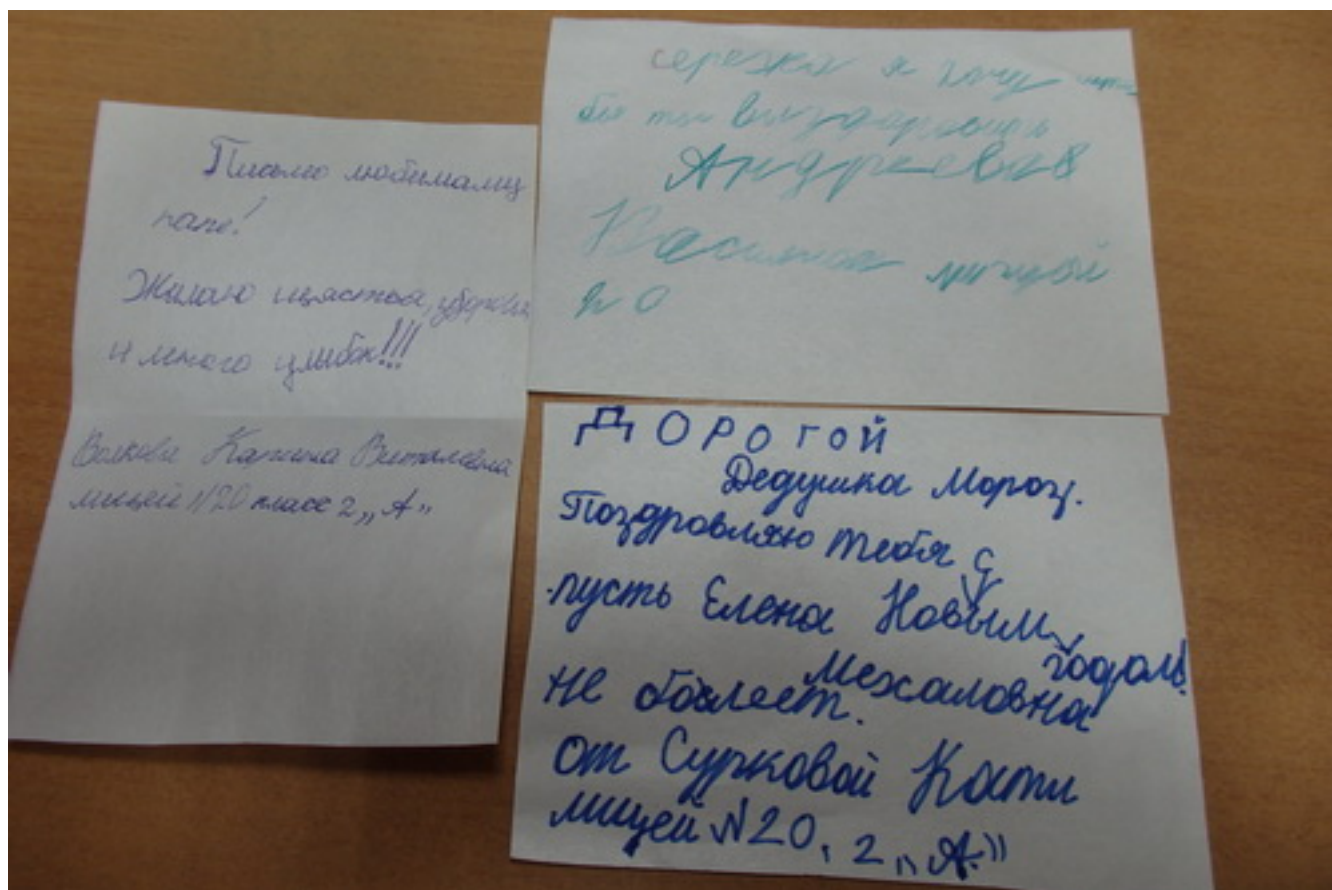 Письмо любимаму
папе!
Желаю щястья, здоровья
и много улыбок!!!
Волкова Карина Виталевна
лицей №20 класс 2 „А"
сережка я хочу
бы ты выздоровил
Андреева
Василиса лицей
20
ДОРОГОЙ
Дедушка Мороз.
Поздравляю тебя с
пусть Елена Новым
годом!
Мехаловна
не болеет.
от Сурковой Кати
лицей №20, 2 „А."